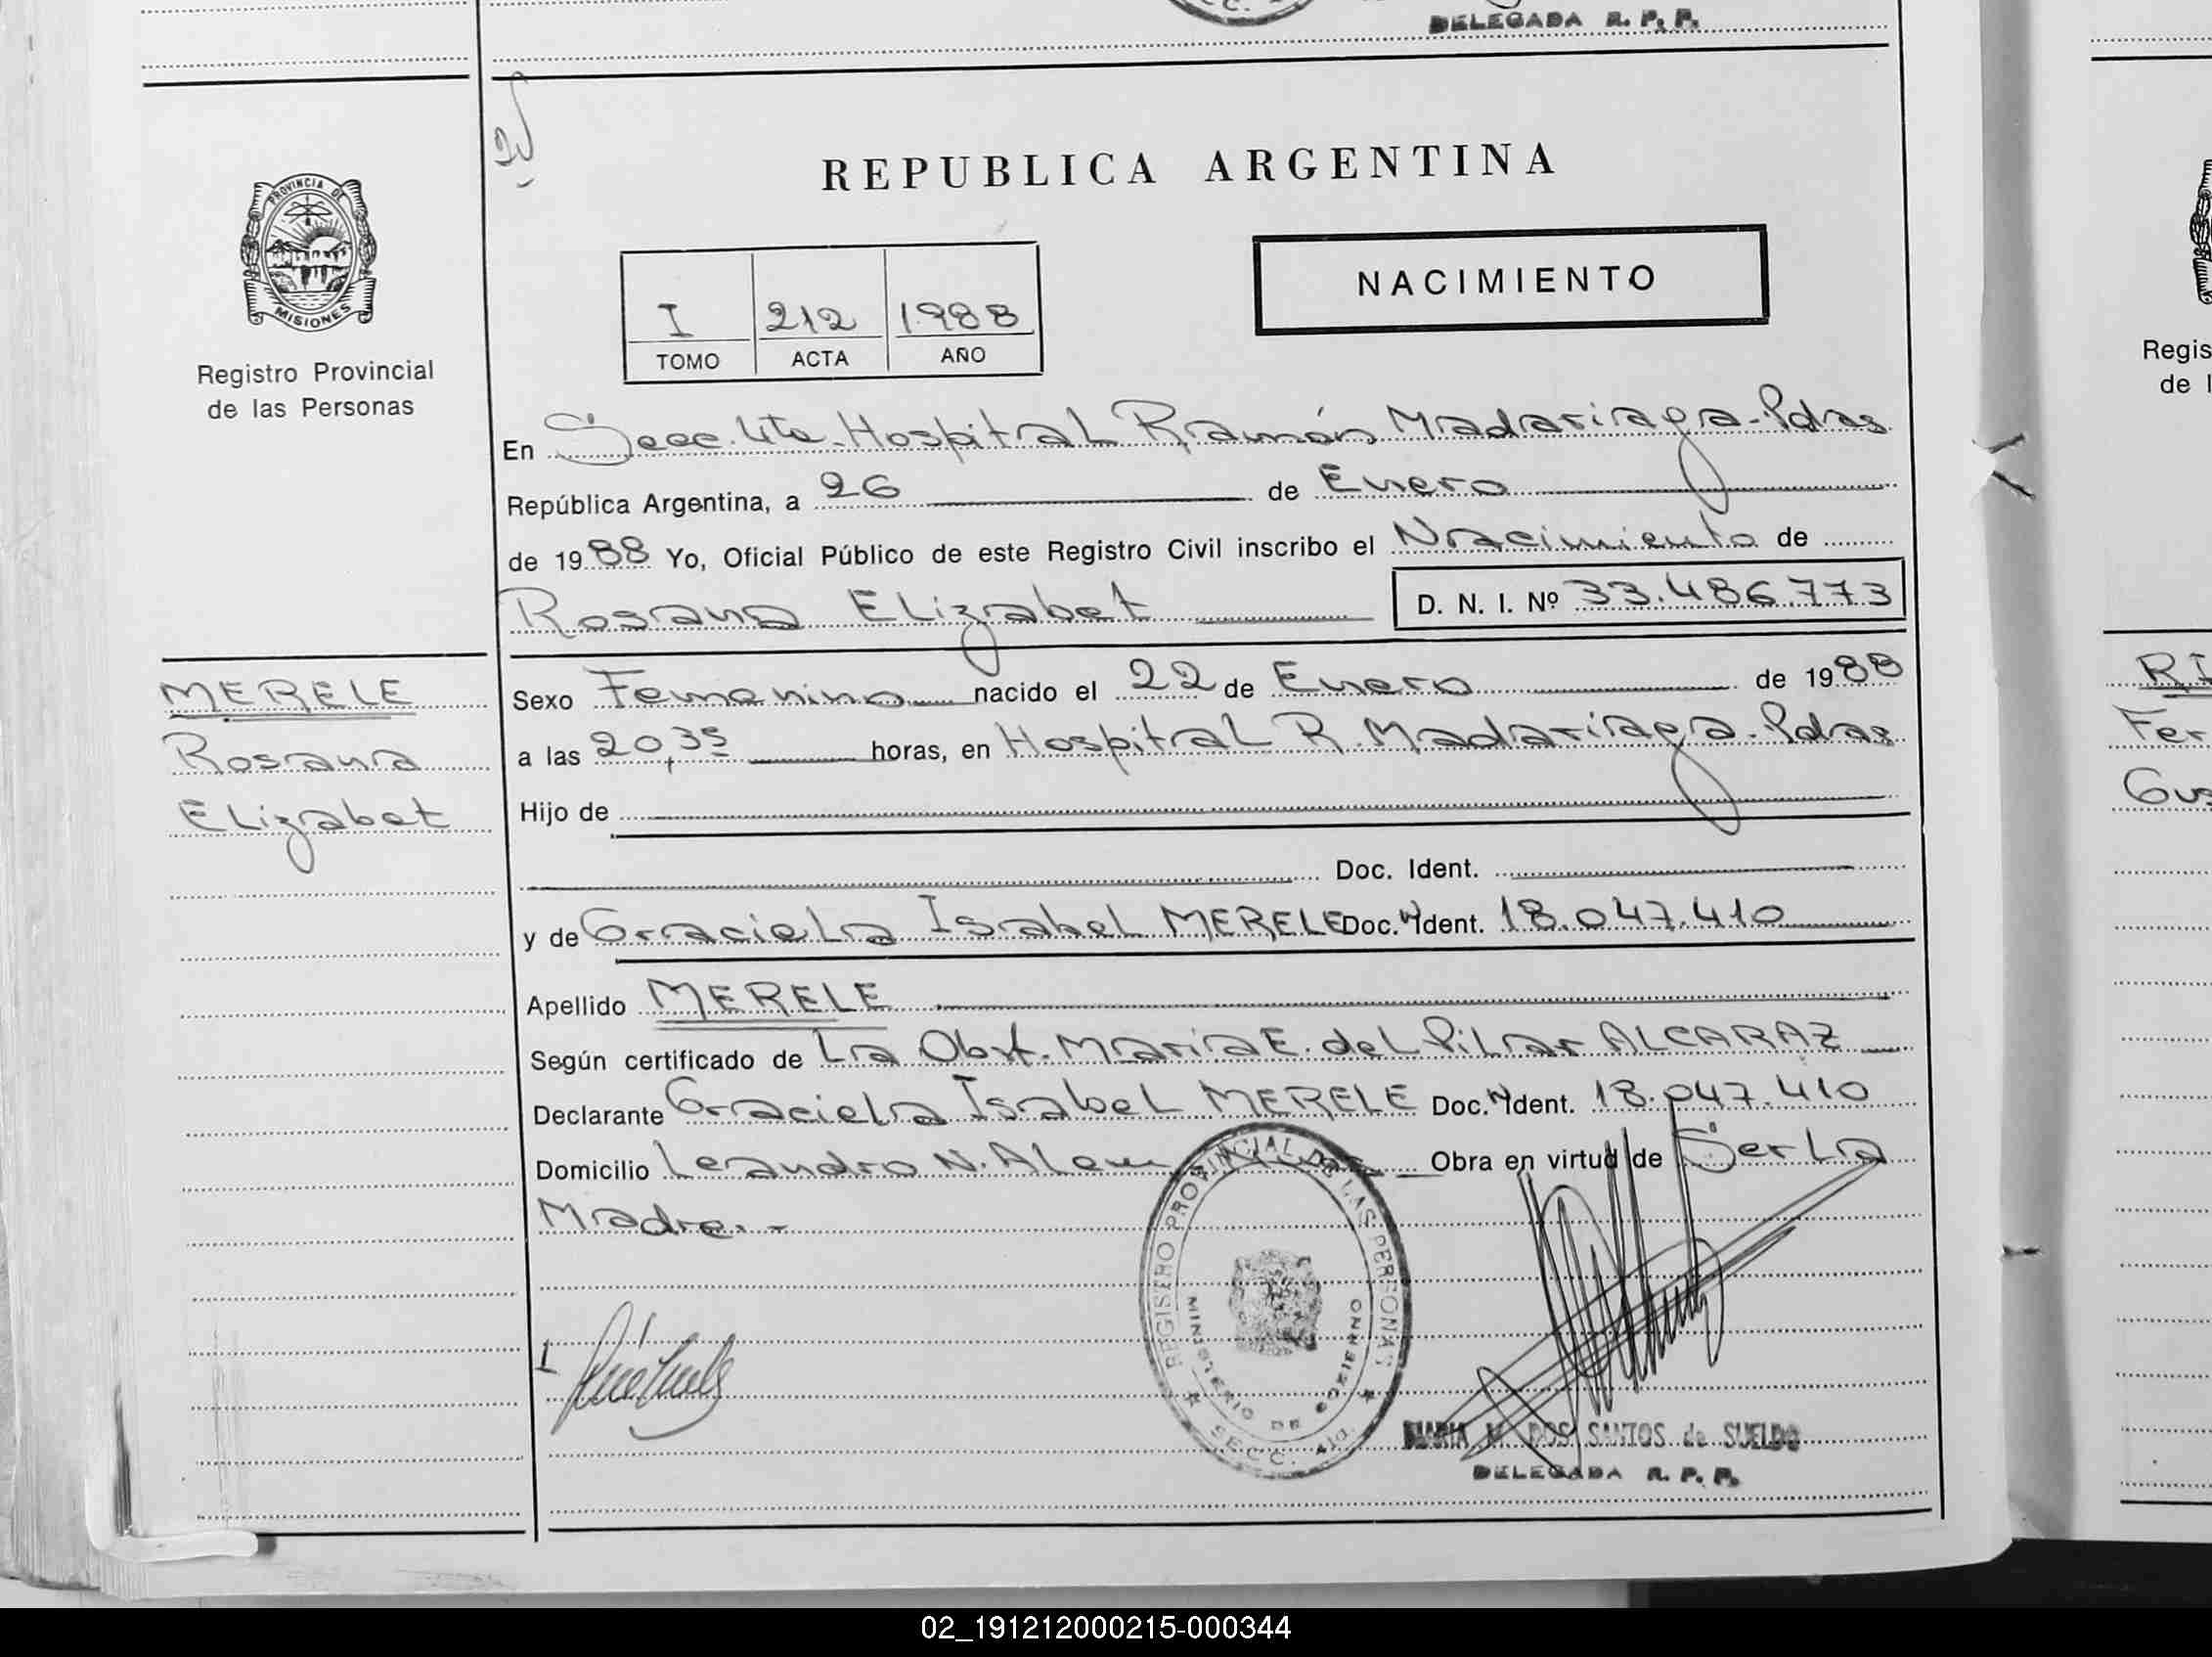 DELEGADA R. P. P.
PROVINCIA DE
MISIONES
Registro Provincial
de las Personas
REPUBLICA ARGENTINA
I 212 1988
TOMO ACTA AÑO
NACIMIENTO
En Secc. 4ta. Hospital Ramón Madariaga-Pdas
República Argentina, a 26 de Enero
de 1988 Yo, Oficial Público de este Registro Civil inscribo el Nacimiento de
Rosana Elizabet D. N. I. Nº 33.486.773
MERELE
Rosana
Elizabet
Sexo Femenino nacido el 22 de Enero de 1988
a las 20,35 horas, en Hospital R. Madariaga-Pdas
Hijo de
Doc. Ident.
y de Graciela Isabel MERELE Doc. Ident. 18.047.410
Apellido MERELE
Según certificado de La Obst. Maria E. del Pilar ALCARAZ
Declarante Graciela Isabel MERELE Doc. Ident. 18.047.410
Domicilio Leandro N. Alem Obra en virtud de Ser La
Madre.-
REGISTRO PROVINCIAL DE LAS PERSONAS
MINISTERIO DE GOBIERNO
SECC. 4ta.
MARIA M. DOS SANTOS de SUELDO
DELEGADA R. P. P.
Regis
de l
RI
Fer
Gus
02_191212000215-000344